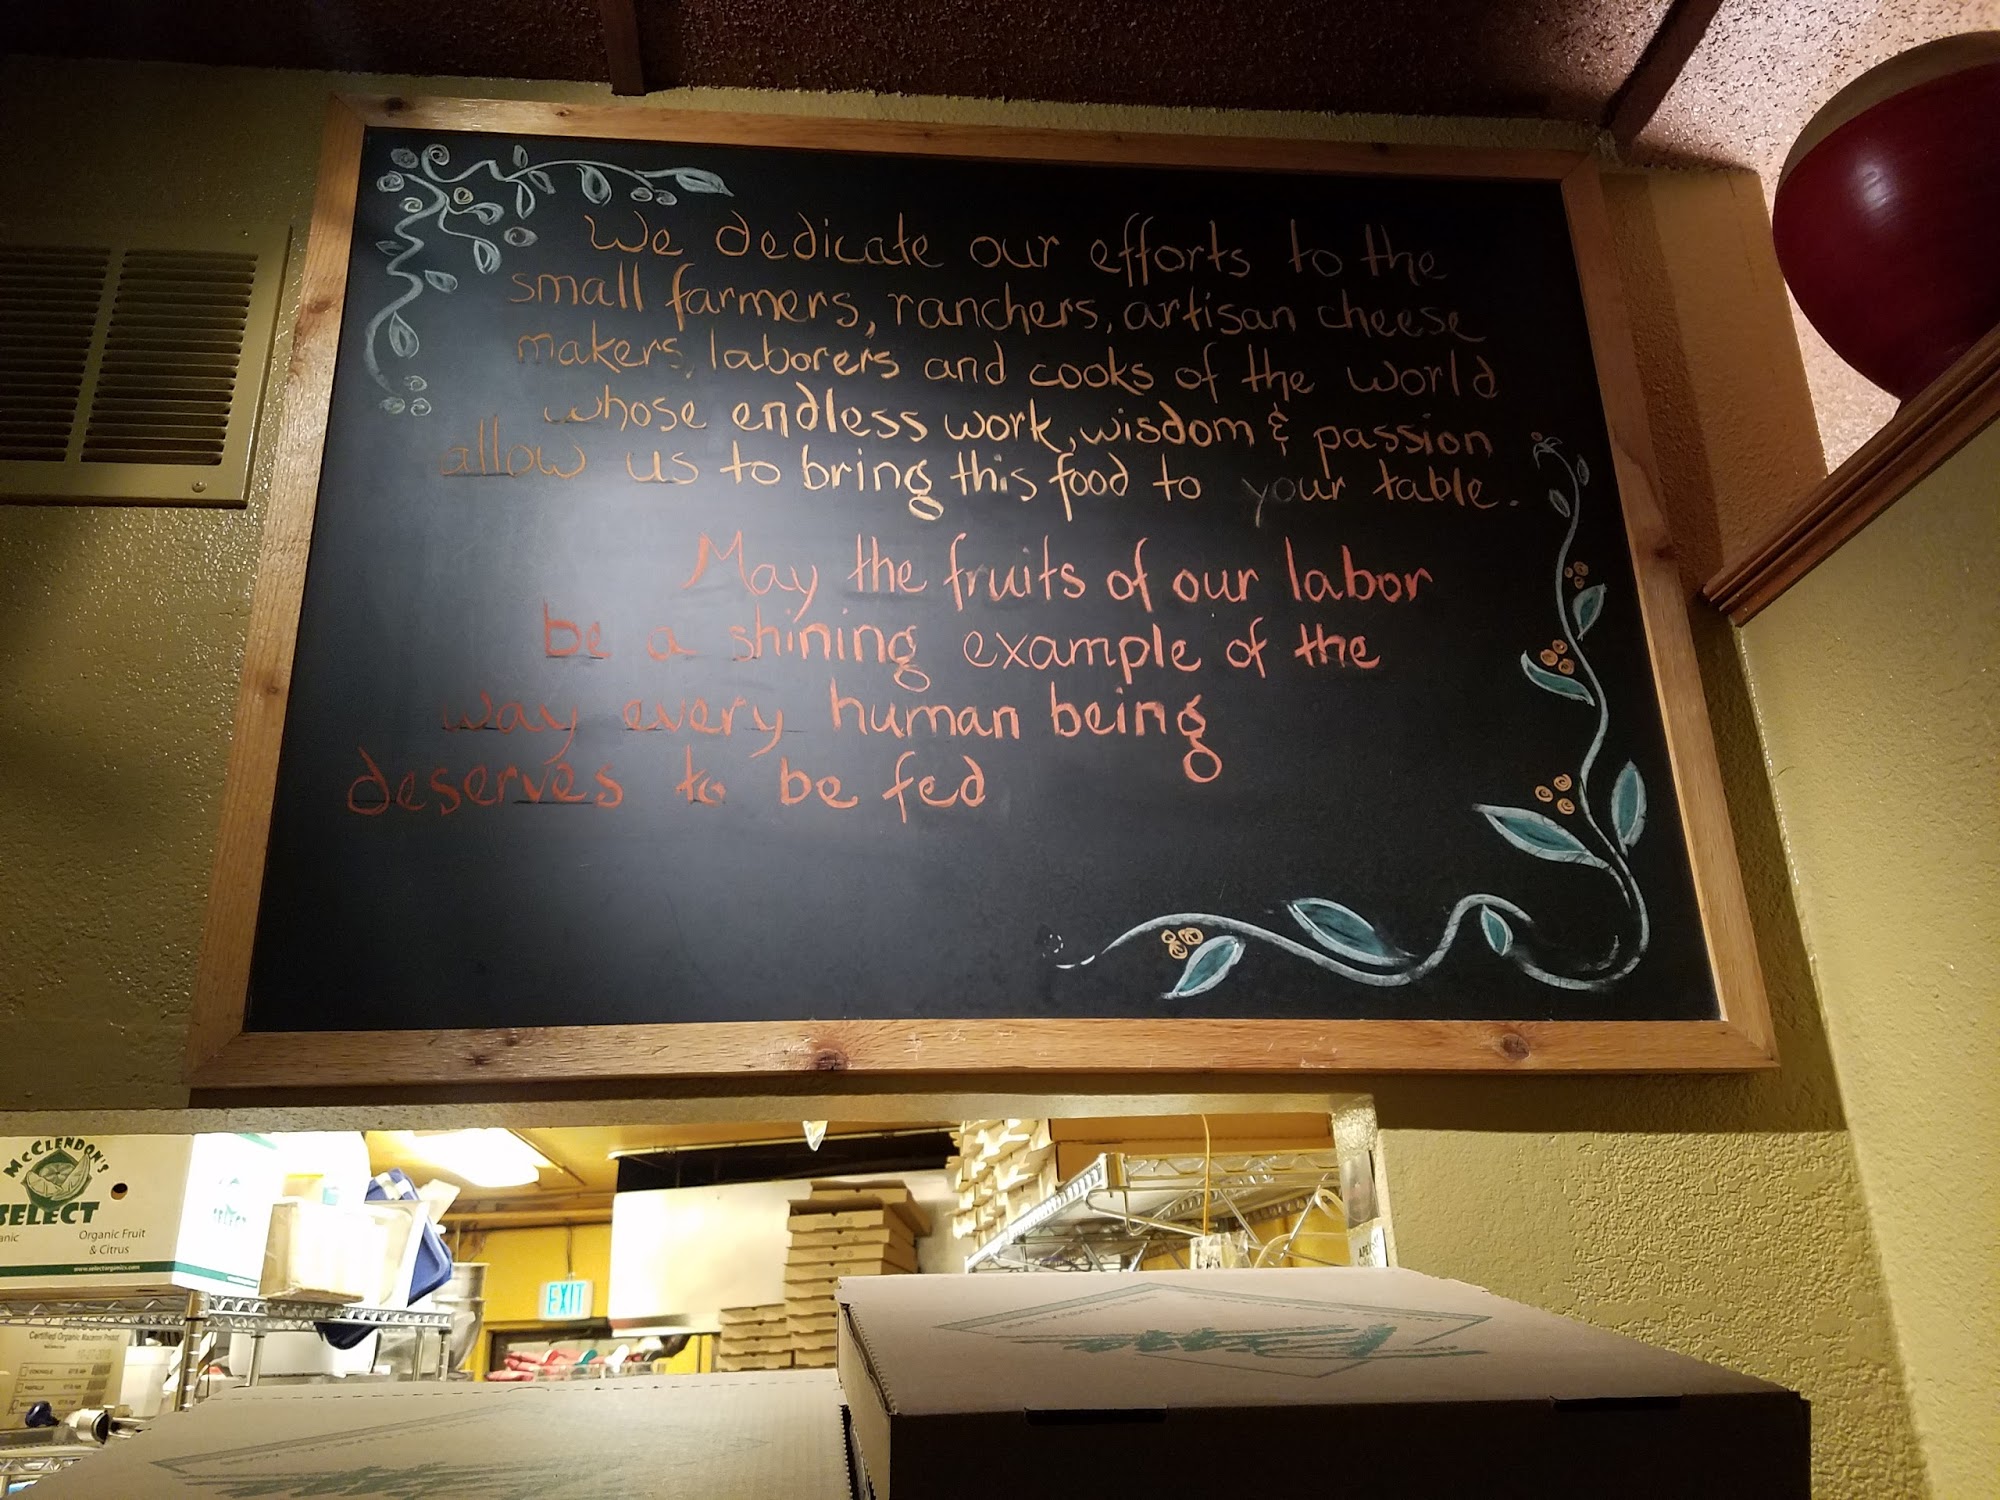 We dedicate our efforts to the
small farmers, ranchers, artisan cheese
makers, laborers and cooks of the world
whose endless work, wisdom & passion
allow us to bring this food to your table.
May the fruits of our labor
be a shining example of the
way every human being
deserves to be fed
McCLENDON'S
SELECT
Organic Fruit
& Citrus
www.selectorganics.com
EXIT
Certified Organic Macaroni Product